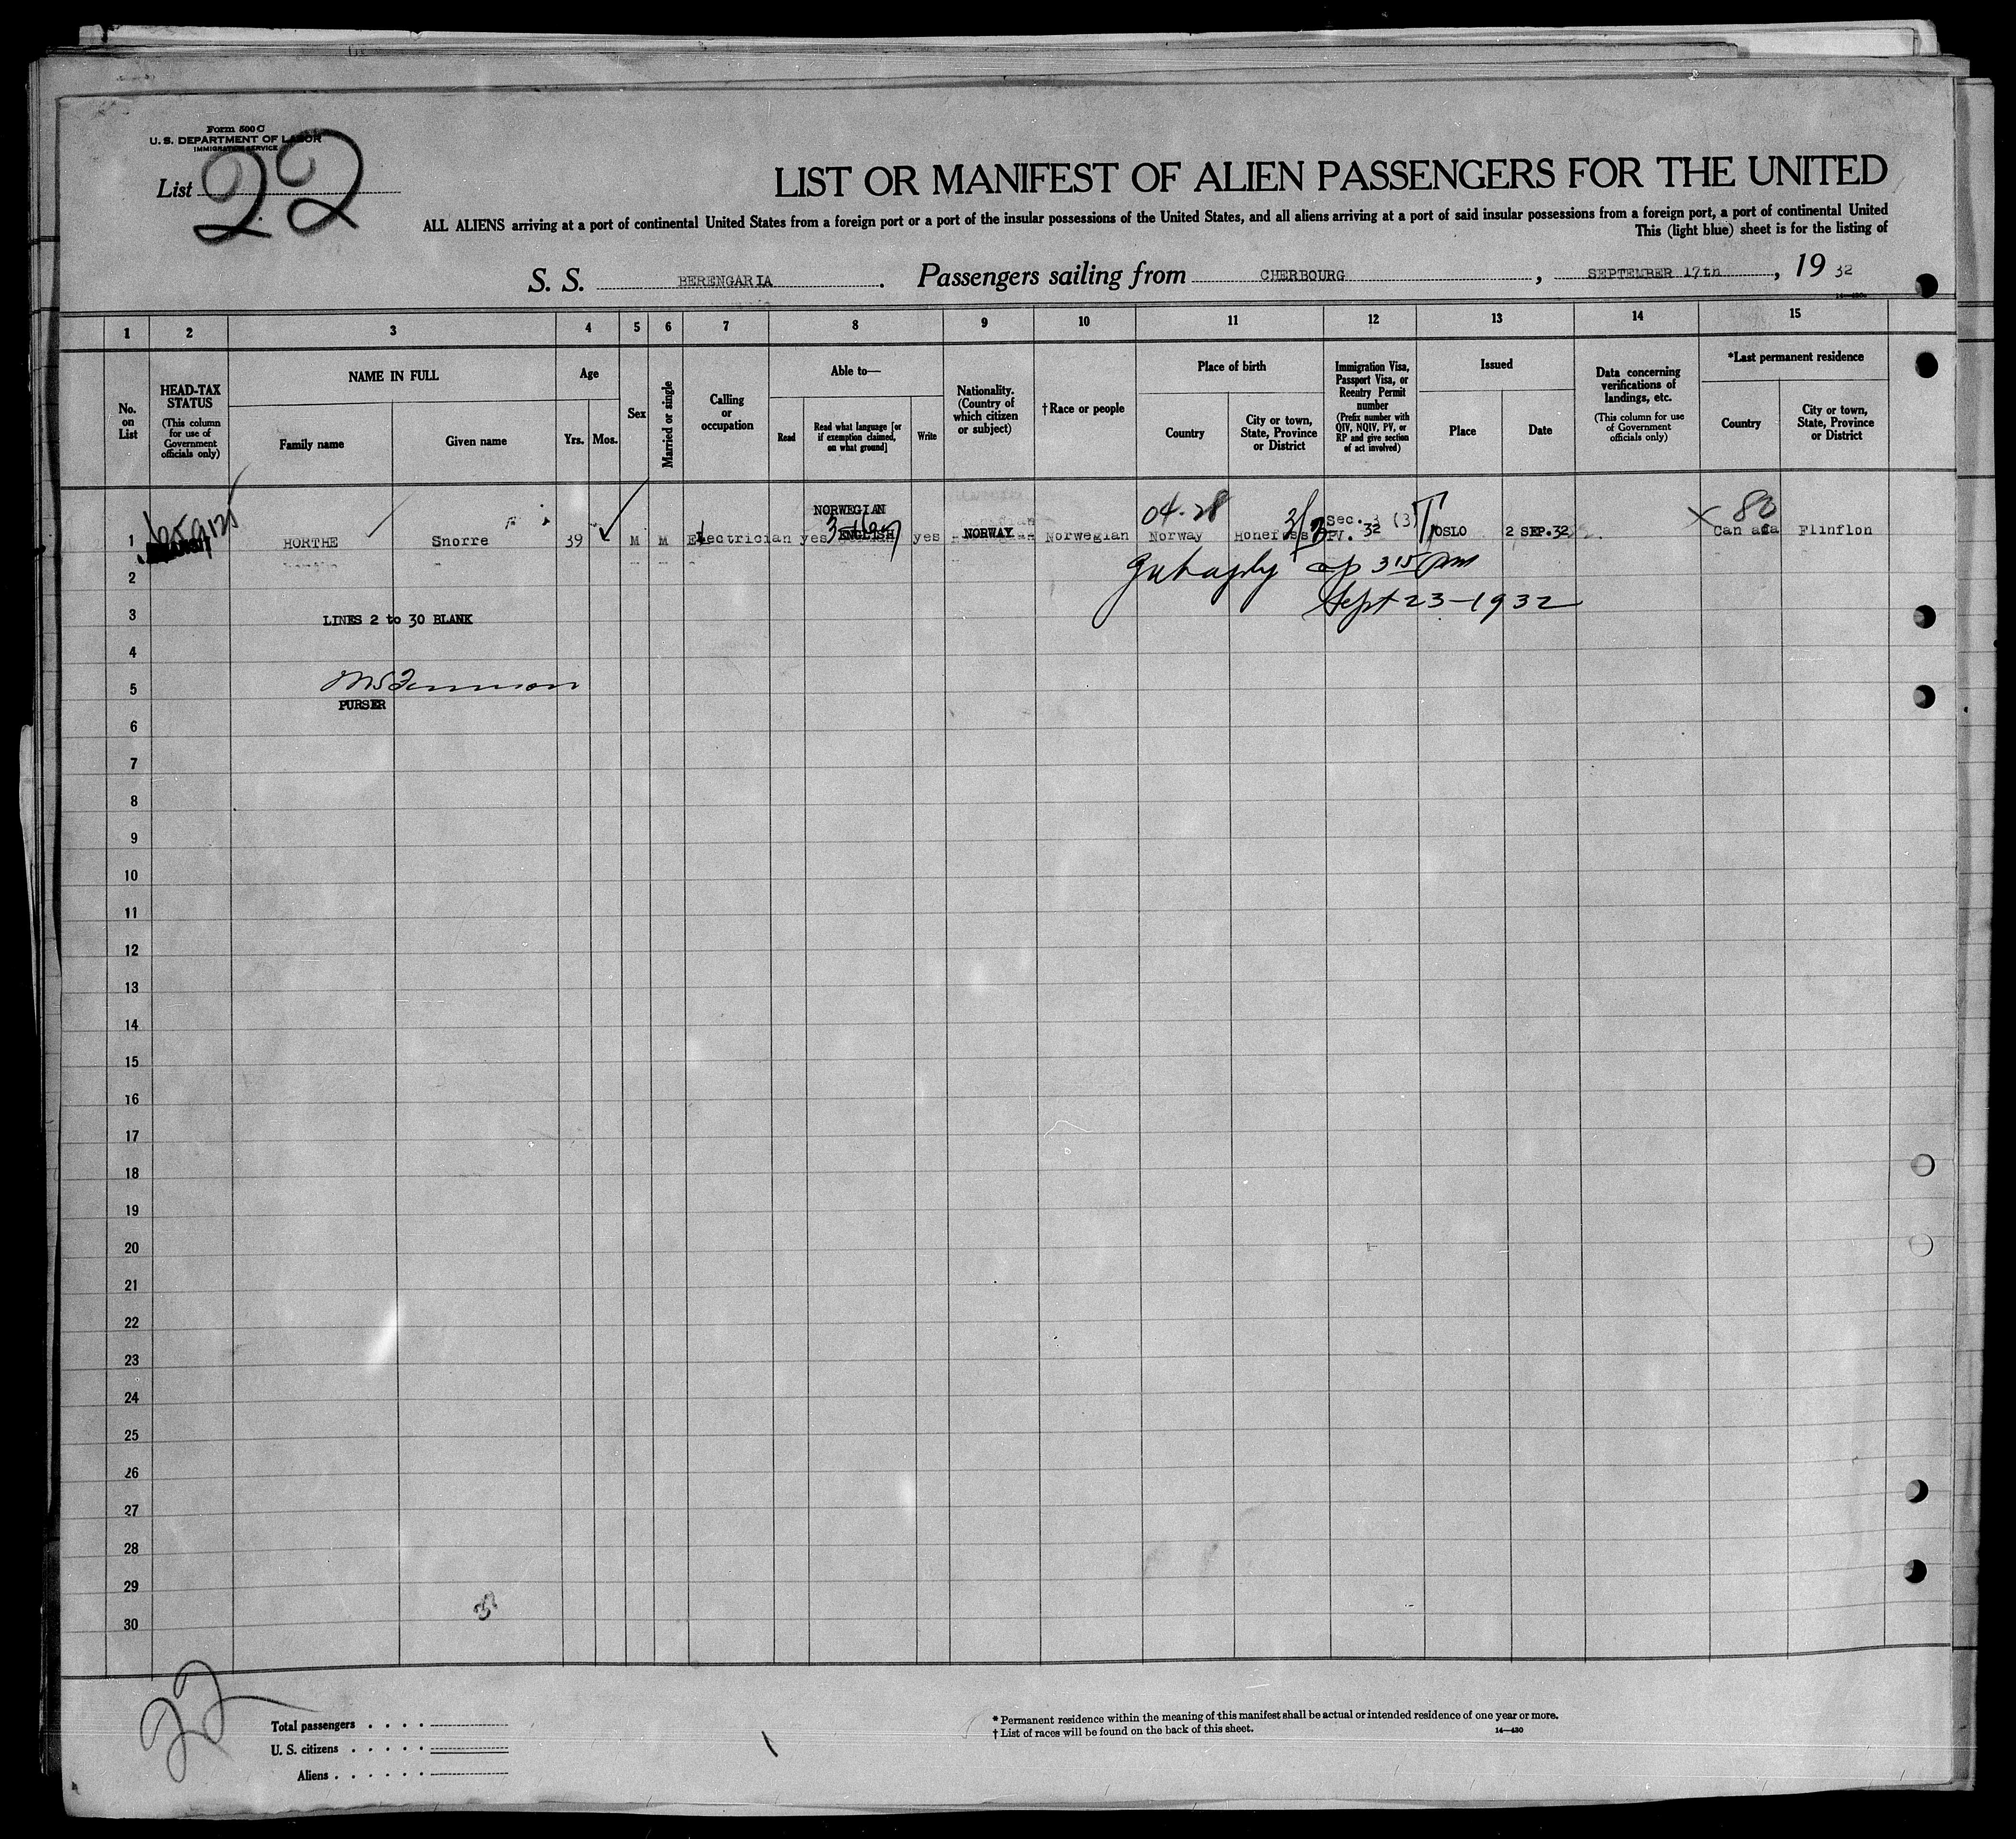 Form 500 C
U. S. DEPARTMENT OF LABOR
IMMIGRATION SERVICE
List 22
LIST OR MANIFEST OF ALIEN PASSENGERS FOR THE UNITED
ALL ALIENS arriving at a port of continental United States from a foreign port or a port of the insular possessions of the United States, and all aliens arriving at a port of said insular possessions from a foreign port, a port of continental United
This (light blue) sheet is for the listing of
S. S. BERENGARIA. Passengers sailing from CHERBOURG, SEPTEMBER 17th, 19 32
1 2 3 4 5 6 7 8 9 10 11 12 13 14 15
No. on List
HEAD-TAX STATUS
(This column for use of Government officials only)
NAME IN FULL
Family name
Given name
Age
Yrs.
Mos.
Sex
Married or single
Calling or occupation
Able to—
Read
Read what language [or if exemption claimed, on what ground]
Write
Nationality. (Country of which citizen or subject)
†Race or people
Place of birth
Country
City or town, State, Province or District
Immigration Visa, Passport Visa, or Reentry Permit number
(Prefix number with QIV, NQIV, PV, or RP and give section of act involved)
Issued
Place
Date
Data concerning verifications of landings, etc.
(This column for use of Government officials only)
*Last permanent residence
Country
City or town, State, Province or District
NORWEGIAN 04-28 Sec. 3 (3) 80
1 HORTHE Snorre 39 M M Electrician yes ENGLISH yes NORWAY Norwegian Norway Honefoss PV. 32 OSLO 2 SEP. 32 Canada Flinflon
2 3 15 pm
Sept 23-1932
3 LINES 2 to 30 BLANK
4
5
PURSER
6
7
8
9
10
11
12
13
14
15
16
17
18
19
20
21
22
23
24
25
26
27
28
29
30
22
Total passengers
U. S. citizens
Aliens
* Permanent residence within the meaning of this manifest shall be actual or intended residence of one year or more.
† List of races will be found on the back of this sheet.
14—430